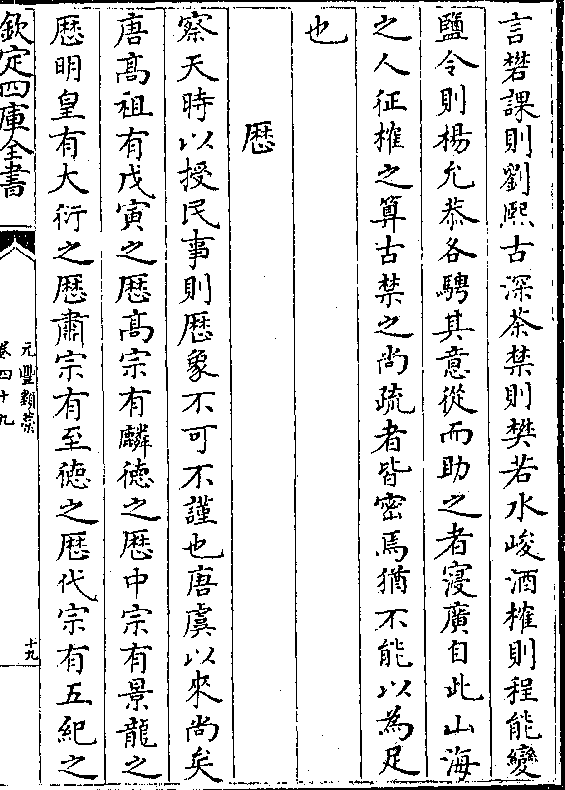 言礬課則劉熙古深茶禁則樊若水峻酒榷則程能變
鹽令則楊允恭各騁其意從而助之者寖廣自此山海
之人征榷之算古禁之尚疏者皆密焉猶不能以為足
也
厯
察天時以授民事則厯象不可不謹也唐虞以來尚矣
唐髙祖有戊寅之厯髙宗有麟徳之厯中宗有景龍之
厯明皇有大衍之厯肅宗有至徳之厯代宗有五紀之
欽定四庫全書
元豐類藁
卷四十九
十九